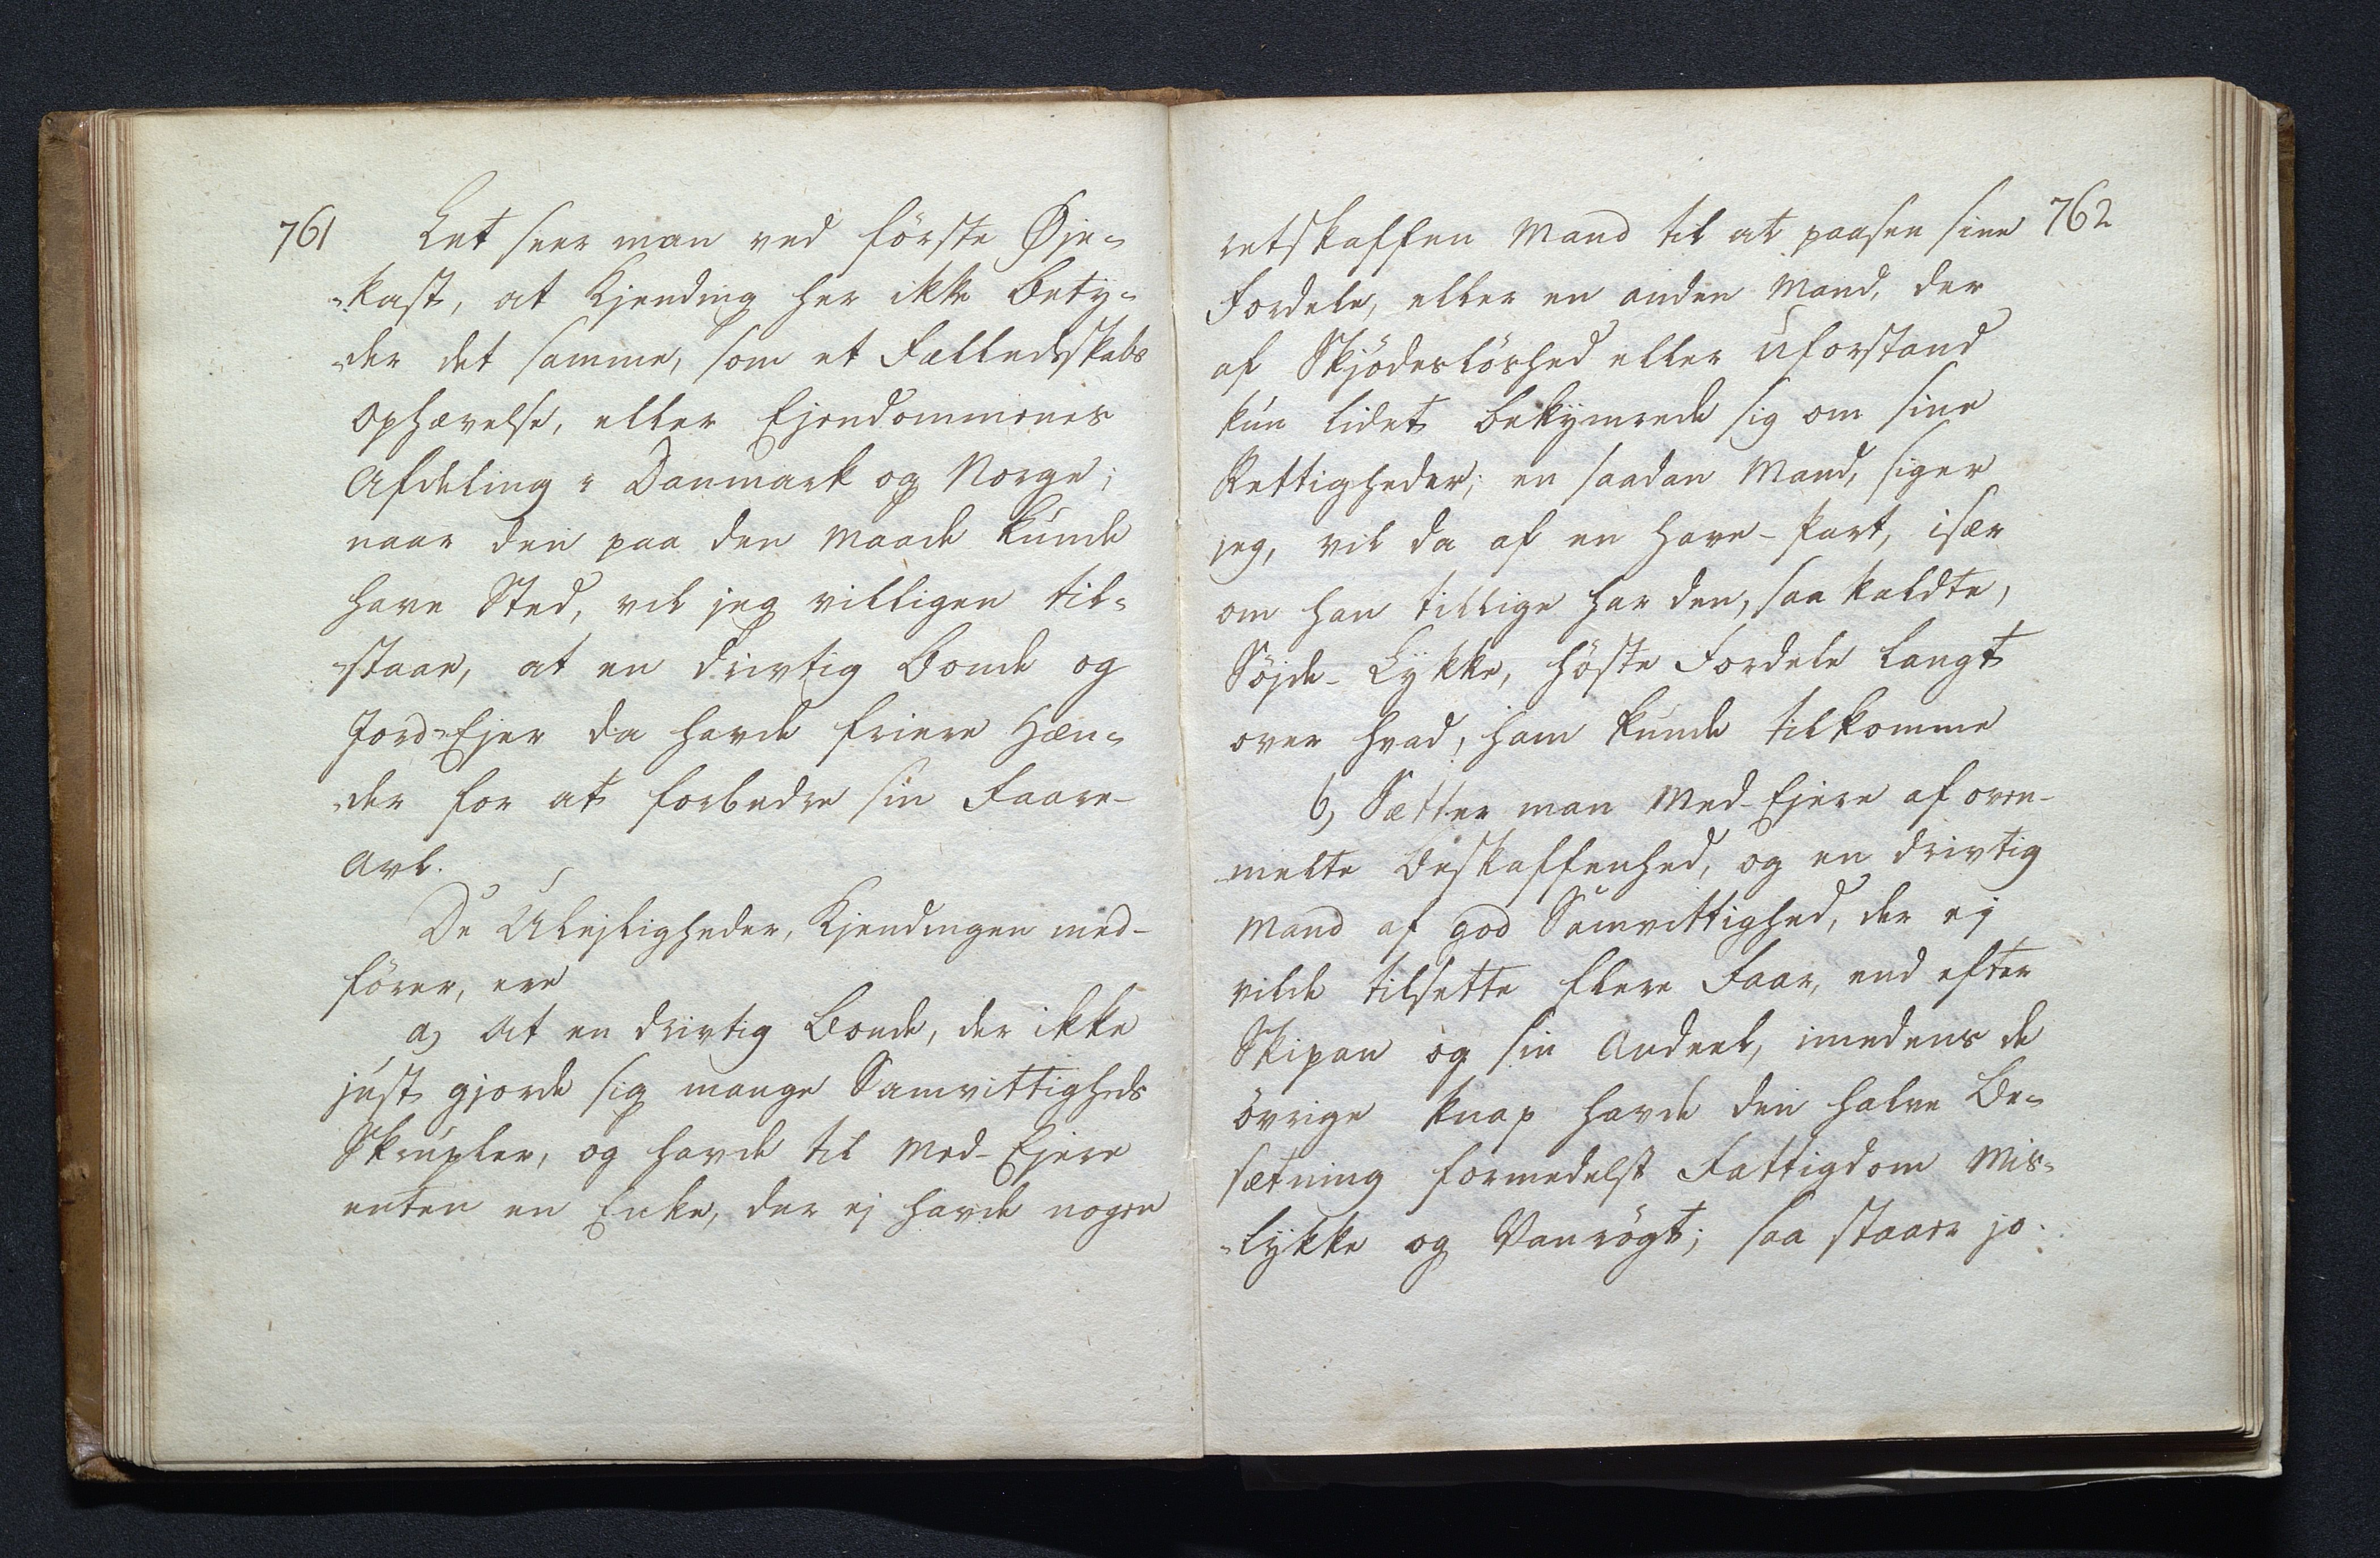 761 Let seer man ved förste Øje-
-kast, at Kjending her ikke bety-
-der det samme, som et Fælledsskabs
Ophævelse, eller Ejendommenes
Afdeling i Danmark og Norge;
naar den paa den Maade kunde
have Sted, vil jeg villigen til-
-staae, at en drivtig Bonde og
Jord-Ejer da havde friere Hæn-
-der for at forbedre sin Faare-
Avl.
De Ulejligheder, Kjendingen med-
förer, ere
a) At en drivtig Bonde, der ikke
just gjorde sig mange Samvittigheds
Skrupler, og havde til Med-Ejere
enten en Enke, der ej havde nogen
retskaffen Mand til at paasee sine 762
Fordele, eller en anden Mand, der
af Skjödeslöshed eller Uforstand
kun lidet bekymrede sig om sine
Rettigheder; en saadan Mand, siger
jeg, vil da af en Have-Part, især
om han tillige har den, saa kaldte,
Söjde-Lykke, höste Fordele langt
over hvad, ham kunde tilkomme
b) Sætter man Med-Ejere af oven-
melte Beskaffenhed, og en drivtig
Mand af god Samvittighed, der ej
vilde tilsette flere Faar, end efter
Skipan og sin Andeel, imedens de
övrige knap havde den halve Be-
sætning formedelst Fattigdom Mis-
-lykke og Vanrögt; saa staaer jo